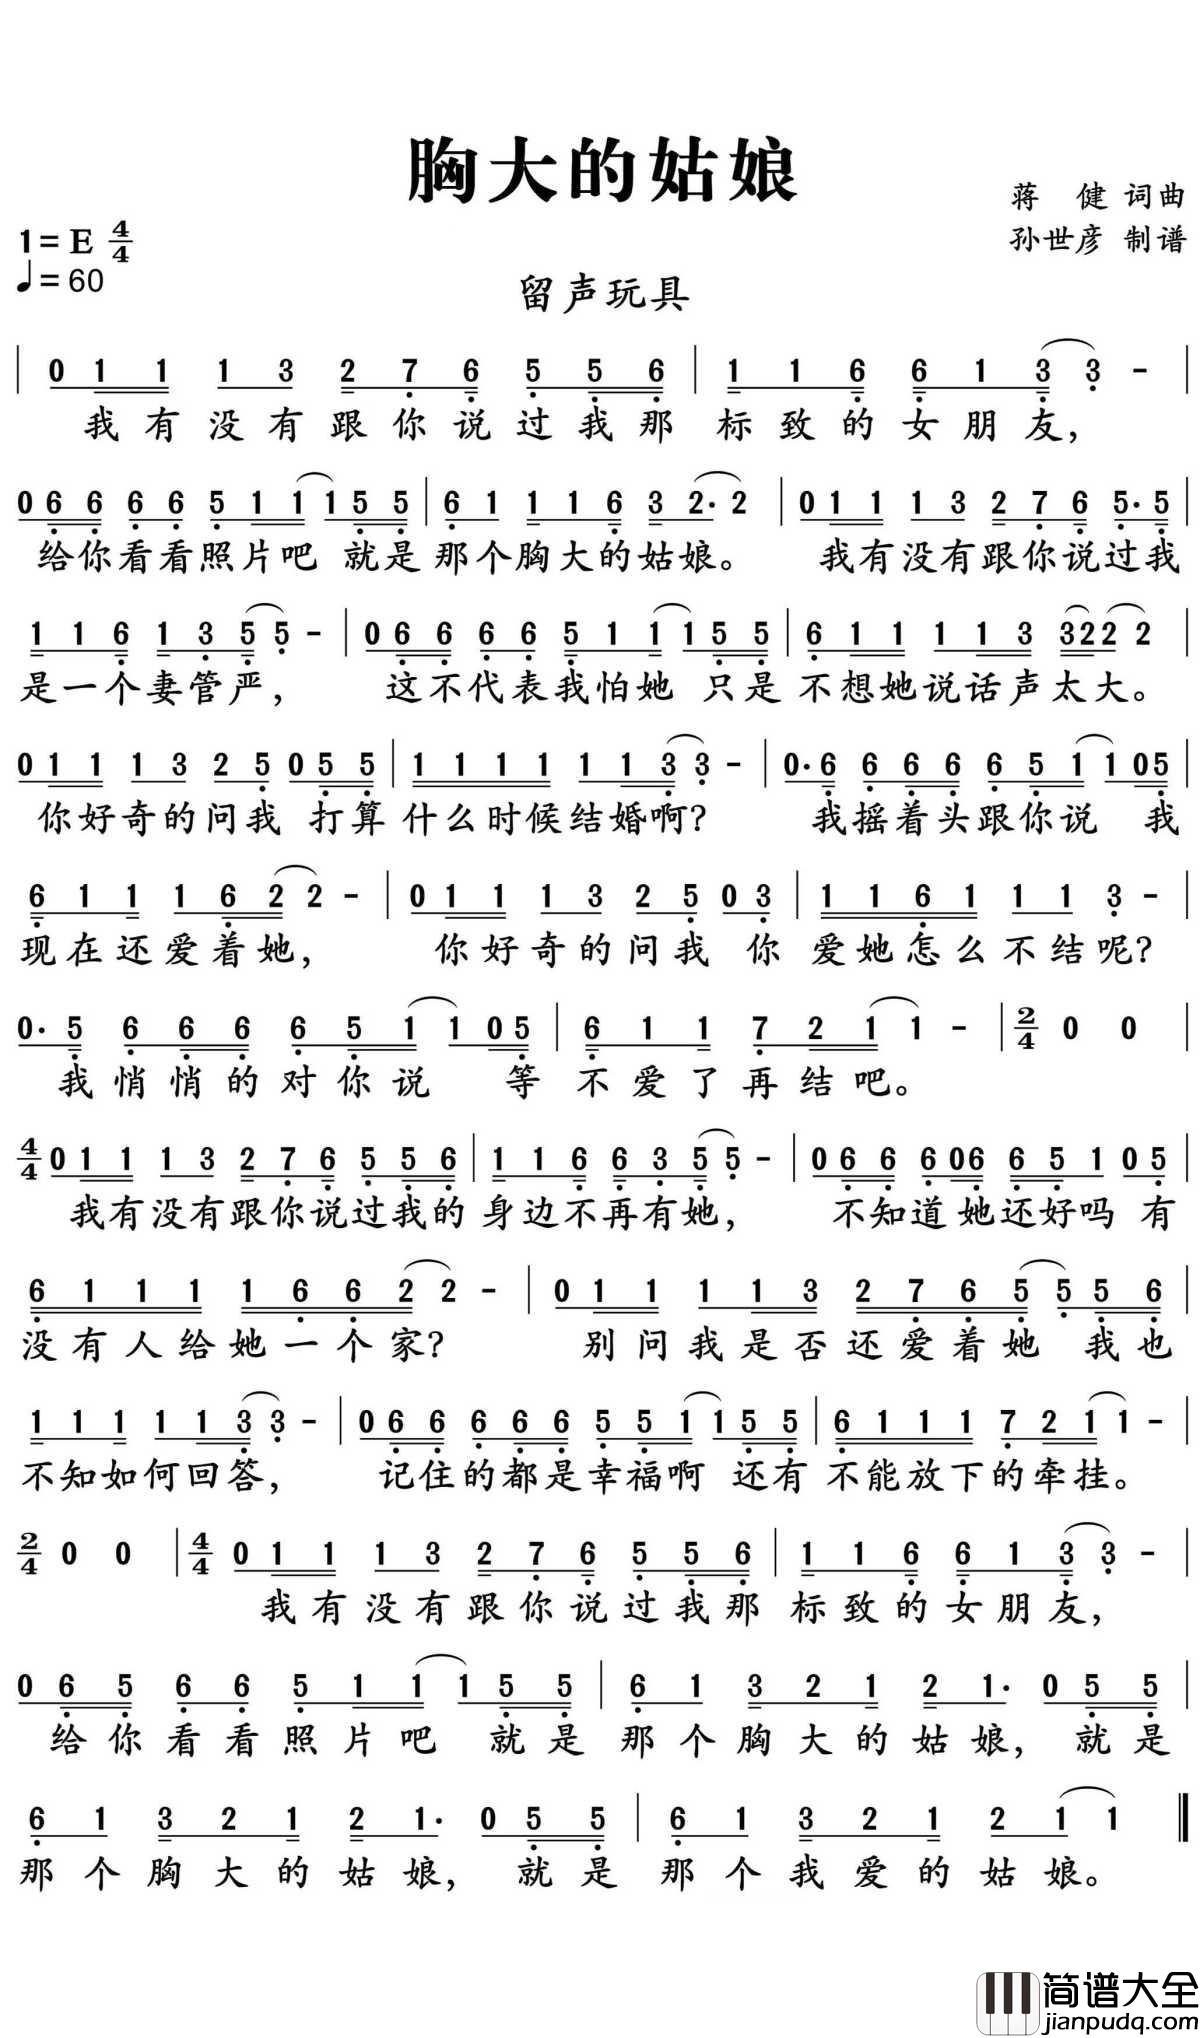 胸大的姑娘
蒋 健 词曲
1=E 4/4
孙世彦 制谱
♩=60
留声玩具
| 0 1 1 1 3 2 7 6 5 5 6 | 1 1 6 6 1 3 3 - |
我有没有跟你说过我那 标致的女朋友，
0 6 6 6 6 5 1 1 1 5 5 | 6 1 1 1 6 3 2· 2 | 0 1 1 1 3 2 7 6 5· 5 |
给你看看照片吧 就是 那个胸大的姑娘。 我有没有跟你说过我
1 1 6 1 3 5 5 - | 0 6 6 6 6 5 1 1 1 5 5 | 6 1 1 1 1 3 3 2 2 2 |
是一个妻管严， 这不代表我怕她 只是 不想她说话声太大。
0 1 1 1 3 2 5 0 5 5 | 1 1 1 1 1 1 3 3 - | 0· 6 6 6 6 6 5 1 1 0 5 |
你好奇的问我 打算 什么时候结婚啊？ 我摇着头跟你说 我
6 1 1 1 6 2 2 - | 0 1 1 1 3 2 5 0 3 | 1 1 6 1 1 1 3 - |
现在还爱着她， 你好奇的问我 你 爱她怎么不结呢？
0· 5 6 6 6 6 5 1 1 0 5 | 6 1 1 7 2 1 1 - | 2/4 0 0 |
我悄悄的对你说 等 不爱了再结吧。
4/4 0 1 1 1 3 2 7 6 5 5 6 | 1 1 6 6 3 5 5 - | 0 6 6 6 0 6 6 5 1 0 5 |
我有没有跟你说过我的 身边不再有她， 不知道她还好吗 有
6 1 1 1 1 6 6 2 2 - | 0 1 1 1 1 3 2 7 6 5 5 5 6 |
没有人给她一个家？ 别问我是否还爱着她 我也
1 1 1 1 1 3 3 - | 0 6 6 6 6 6 5 5 1 1 5 5 | 6 1 1 1 7 2 1 1 - |
不知如何回答， 记住的都是幸福啊 还有 不能放下的牵挂。
2/4 0 0 | 4/4 0 1 1 1 3 2 7 6 5 5 6 | 1 1 6 6 1 3 3 - |
我有没有跟你说过我那 标致的女朋友，
0 6 5 6 6 5 1 1 1 5 5 | 6 1 3 2 1 2 1· 0 5 5 |
给你看看照片吧 就是 那个胸大的姑娘， 就是
6 1 3 2 1 2 1· 0 5 5 | 6 1 3 2 1 2 1 1 ‖
那个胸大的姑娘， 就是 那个我爱的姑娘。
简谱大全
jianpudq.com